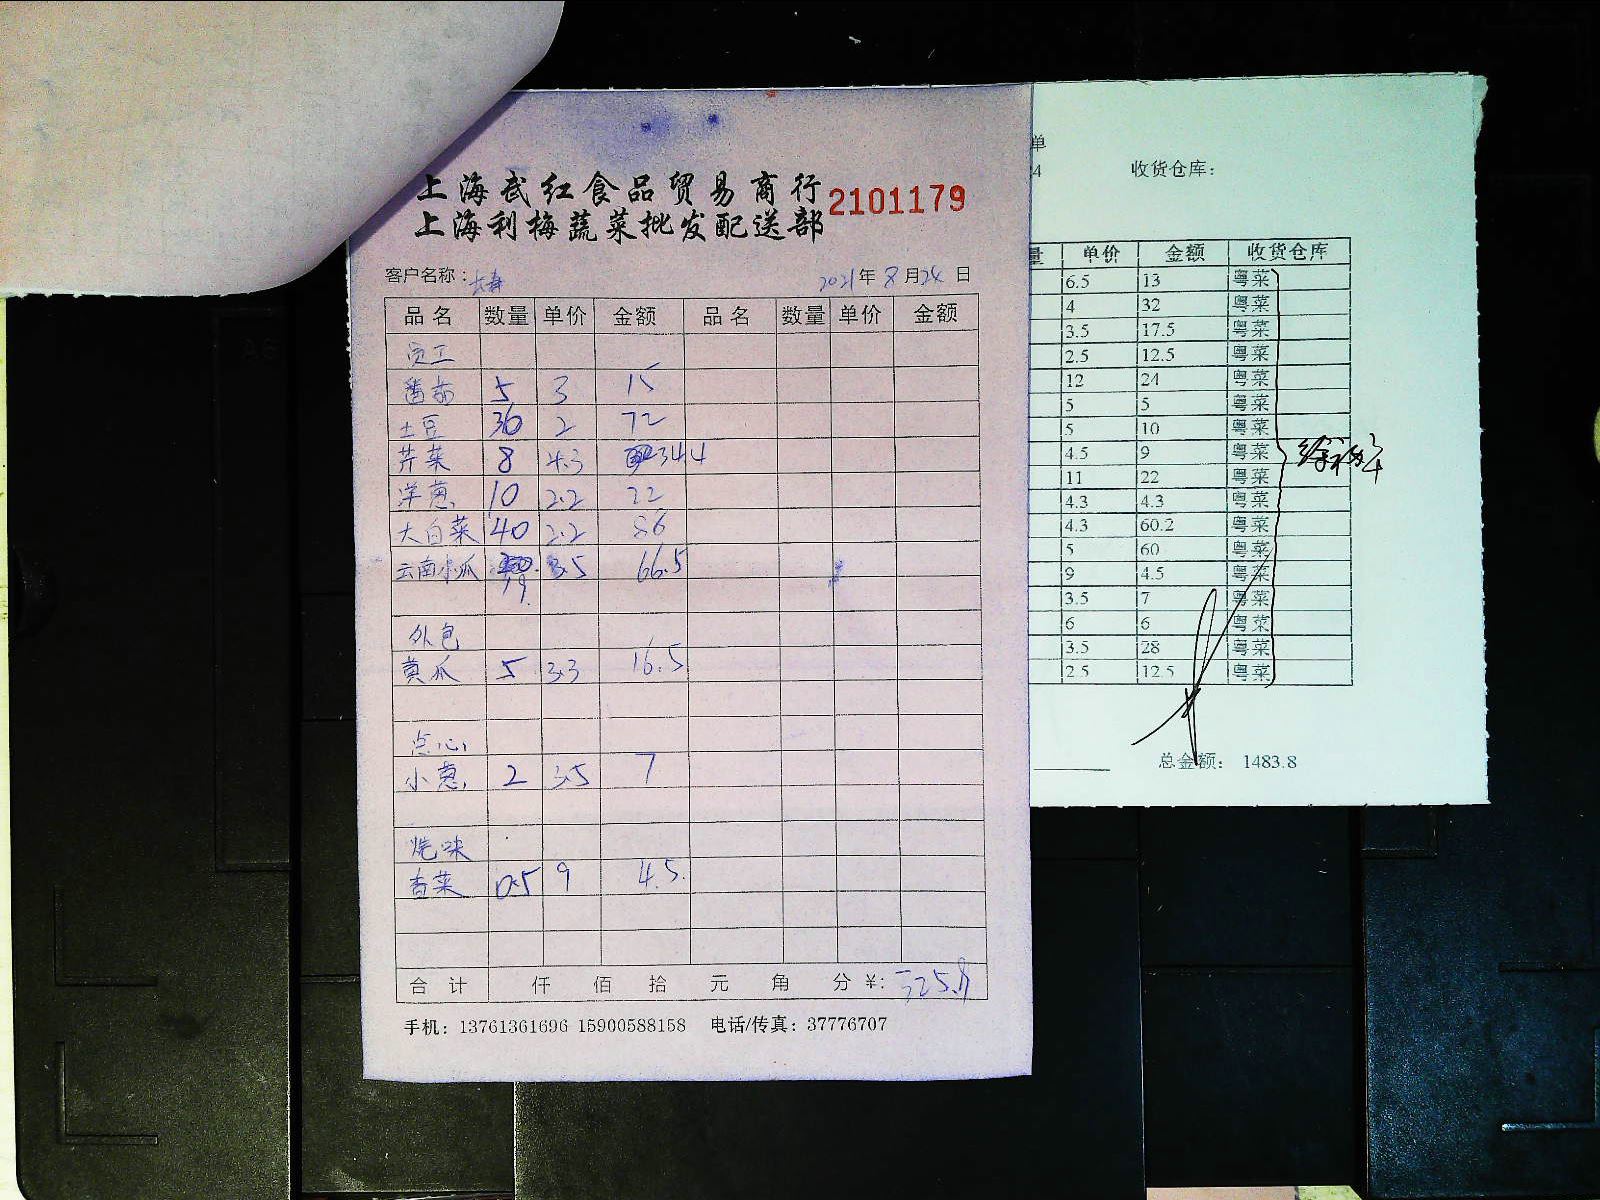 上海武红食品贸易商行 2101179
上海利梅蔬菜批发配送部
客户名称: 2021年8月24日
品名 数量 单价 金额 品名 数量 单价 金额
员工
番茄 5 3 15
土豆 36 2 72
芹菜 8 4.3 34.4
洋葱 10 2.2 22
大白菜 40 2.2 86
云南小瓜 19 3.5 66.5
外包
黄瓜 5 3.3 16.5
点心
小葱 2 3.5 7
烧味
香菜 0.5 9 4.5
合计 仟 佰 拾 元 角 分 ¥: 325.9
手机: 13761361696 15900588158 电话/传真: 37776707
单
4 收货仓库:
量 单价 金额 收货仓库
6.5 13 粤菜
4 32 粤菜
3.5 17.5 粤菜
2.5 12.5 粤菜
12 24 粤菜
5 5 粤菜
5 10 粤菜
4.5 9 粤菜
11 22 粤菜
4.3 4.3 粤菜
4.3 60.2 粤菜
5 60 粤菜
9 4.5 粤菜
3.5 7 粤菜
6 6 粤菜
3.5 28 粤菜
2.5 12.5 粤菜
总金额: 1483.8